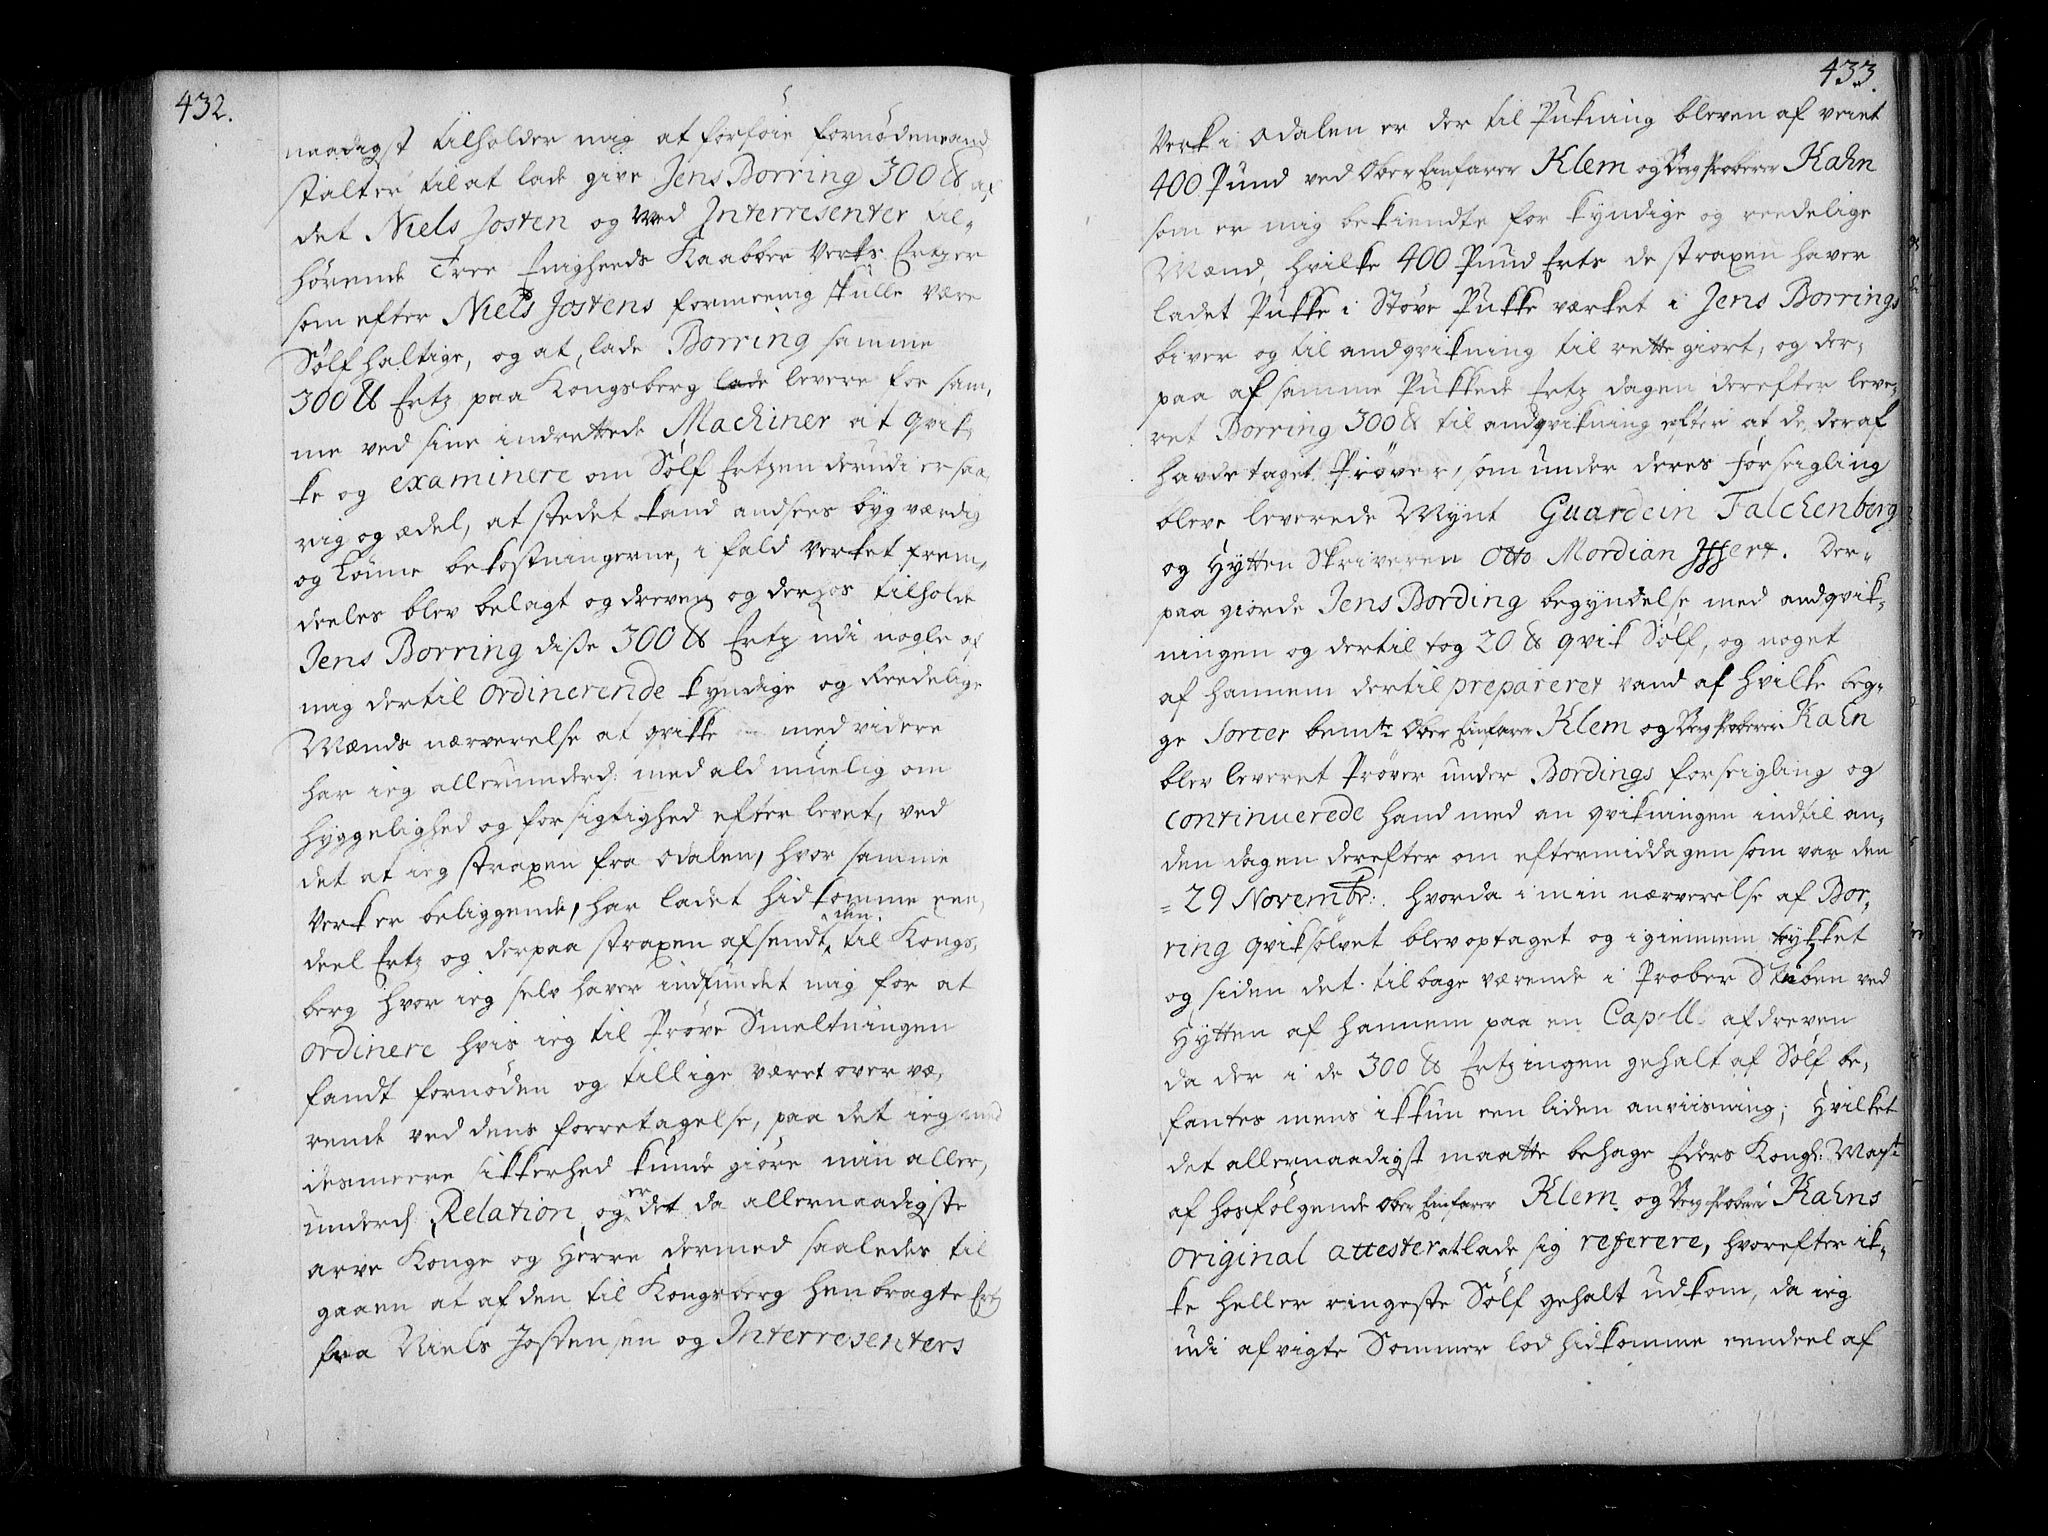 432.
naadigst tilholder mig at forføie fornødene and
stalter til at lade give Jens Borring 300 ℔ af
det Niels Josten og Med Interresenter til-
hørende Tree Enigheeds Kaabber Verks Ertzer
som efter Niels Jostens formeenig skulle være
Sølfhaltige, og at lade Borring samme
300 ℔ Ertz paa Kongsberg lade levere for sam,
me ved sine indrettede Machiner at qvik,
ke og examinere om Sølf Ertzen derudi er saa,
rig og ædel, at stedet kand andsees bygværdig
og Lønne bekostningerne, i fald Verket frem,
deeles blev belagt og dreven og derhos tilholde
Jens Borring disse 300 ℔ Ertz udi nogle af
mig dertil ordinerende kyndige og Reedelige
Mænds nærværelse at qvikke med videre
har ieg allerunderd: med ald muelig om
hyggelighed og forsigtighed efterlevet, ved
det at ieg straxen fra Odalen, hvor samme
Verk er beliggende, har ladet hidkomme een,
deel Ertz og derpaa straxen afsendt den til Kongs,
berg hvor ieg selv haver indfundet mig for at
ordinere hvis ieg til Prøve Smeltningen
fandt fornøden og tillige været over væ,
rende ved dens forretagelse, paa det ieg med
desmeere sikkerhed kunde giøre min aller,
underd Relation, og er det da allernaadigste
arve Konge og Herre dermed saaledes til
gaaen at af den til Kongsberg henbragte Ertz
fra Niels Jostensen og Interresenters
433.
Verk i Odalen er der til Pukning bleven af veiet
400 Pund ved Ober Einfarer Klem og Berg Proberer Kahn
som er mig bekiendte for kyndige og reedelige
Mænd, hvilke 400 Pund Erts de straxen haver
ladet Pukke i Støve Pukke værket i Jens Borrings
biver og til andqvikning til rette giort, og der-
paa af samme Pukkede Ertz dagen derefter leve,
ret Borring 300 ℔ til andqvikning efter at de deraf
havde taget Prøver, som under deres forseigling
bleve leverede Mynt Guardein Falchenberg
og Hytten Skriveren Otto Mordian Iffert. Der-
paa giorde Jens Bording begyndelse med andqvik,
ningen og dertil tog 20 ℔ qvik Sølf, og noget
af hannem dertil prepareret vand af hvilke beg-
ge Sorter bemte Ober Einfarer Klem og Berg Proberer Kahn
blev leveret Prøver under Bordings forseigling og
continuerede hand med an qvikningen indtil an,
den dagen derefter om eftermiddagen som var den
= 29 Novembr: hvorda i min nærværelse af Bor,
ring qviksølvet blev optaget og igiennem trykket
og siden det tilbage værende i Prober Stuben ved
Hytten af hannem paa en Capell afdreven
da der i de 300 ℔ Ertz ingen gehalt af Sølf be,
fantes mens ikkun een liden anviisning; Hvilket
det allernaadigst maatte behage Eders Kongl: Mayst
af hosfølgende Ober Einfarer Klem og Berg Proberer Kahns
original attester at lade sig referere, hvorefter ik-
ke heller ringeste Sølf gehalt udkom, da ieg
udi afvigte Sommer lod hidkomme eendeel af